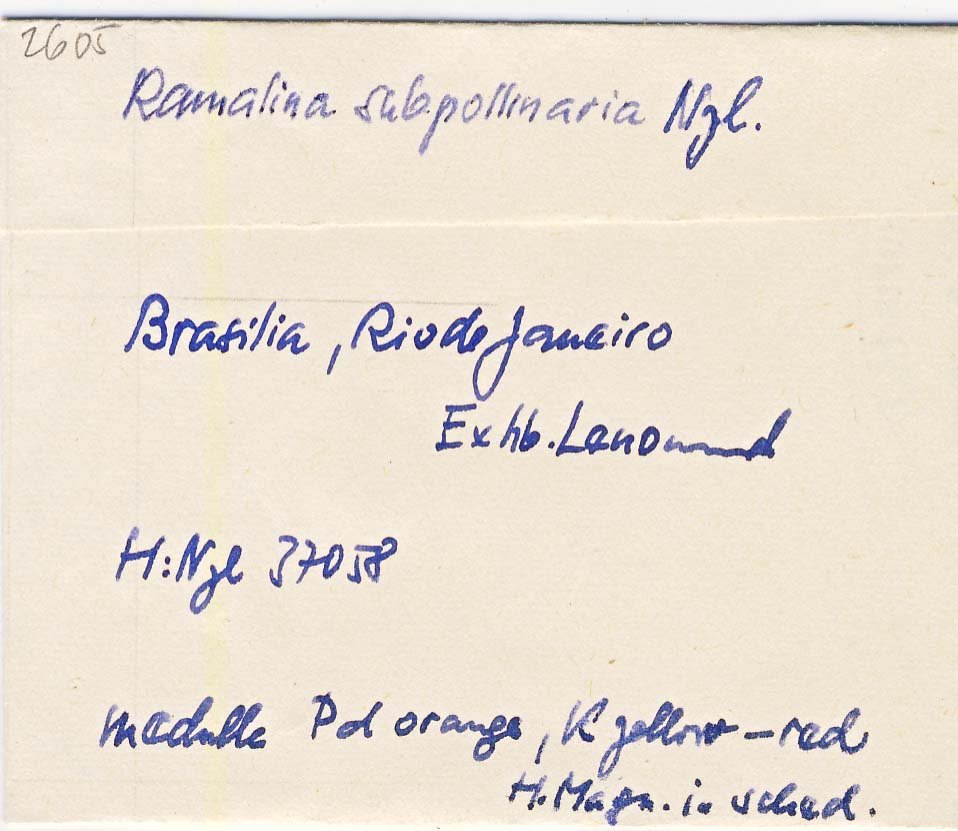 2605
Ramalina subpollinaria Nyl.
Brasilia, Rio de Janeiro
Ex hb. Lenormand
H:Nyl 37058
medulla Pd orange, K yellow – red
H. Magn. in sched.